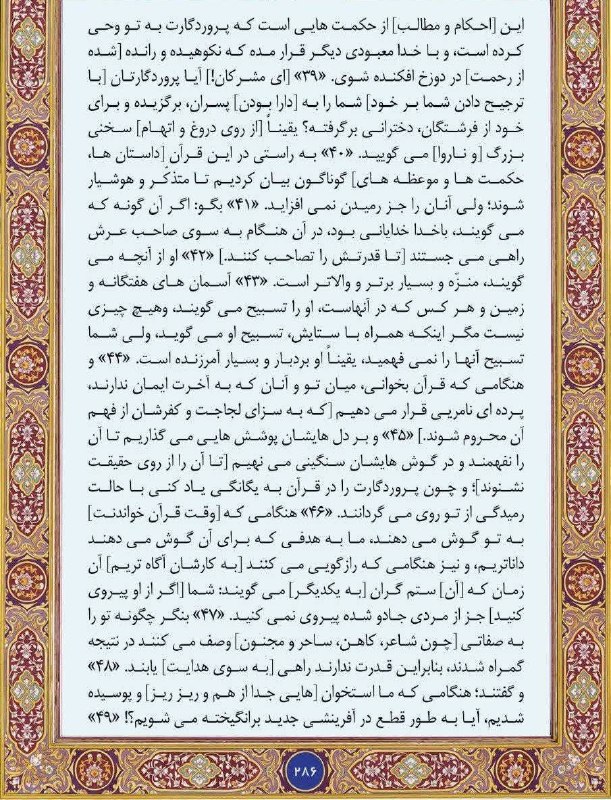 این [احکام و مطالب] از حکمت هایی است که پروردگارت به تو وحی
کرده است، و با خدا معبودی دیگر قرار مده که نکوهیده و رانده [شده
از رحمت] در دوزخ افکنده شوی. «۳۹» [ای مشرکان!] آیا پروردگارتان [با
ترجیح دادن شما بر خود] شما را به [دارا بودن] پسران، برگزیده و برای
خود از فرشتگان، دخترانی برگرفته؟ یقیناً [از روی دروغ و اتهام] سخنی
بزرگ [و ناروا] می گویید. «۴۰» به راستی در این قرآن [داستان ها،
حکمت ها و موعظه های] گوناگون بیان کردیم تا متذکّر و هوشیار
شوند؛ ولی آنان را جز رمیدن نمی افزاید. «۴۱» بگو: اگر آن گونه که
می گویند، باخدا خدایانی بود، در آن هنگام به سوی صاحب عرش
راهی می جستند [تا قدرتش را تصاحب کنند.] «۴۲» او از آنچه می
گویند، منزّه و بسیار برتر و والاتر است. «۴۳» آسمان های هفتگانه و
زمین و هر کس که در آنهاست، او را تسبیح می گویند، وهیچ چیزی
نیست مگر اینکه همراه با ستایش، تسبیح او می گوید، ولی شما
تسبیح آنها را نمی فهمید، یقیناً او بردبار و بسیار آمرزنده است. «۴۴» و
هنگامی که قرآن بخوانی، میان تو و آنان که به آخرت ایمان ندارند،
پرده ای نامریی قرار می دهیم [که به سزای لجاجت و کفرشان از فهم
آن محروم شوند.] «۴۵» و بر دل هایشان پوشش هایی می گذاریم تا آن
را نفهمند و در گوش هایشان سنگینی می نهیم [تا آن را از روی حقیقت
نشنوند]؛ و چون پروردگارت را در قرآن به یگانگی یاد کنی با حالت
رمیدگی از تو روی می گردانند. «۴۶» هنگامی که [وقت قرآن خواندنت]
به تو گوش می دهند، ما به هدفی که برای آن گوش می دهند
داناتریم، و نیز هنگامی که رازگویی می کنند [به کارشان آگاه تریم] آن
زمان که [آن] ستم گران [به یکدیگر] می گویند: شما [اگر از او پیروی
کنید] جز از مردی جادو شده پیروی نمی کنید. «۴۷» بنگر چگونه تو را
به صفاتی [چون شاعر، کاهن، ساحر و مجنون] وصف می کنند در نتیجه
گمراه شدند، بنابراین قدرت ندارند راهی [به سوی هدایت] یابند. «۴۸»
و گفتند: هنگامی که ما استخوان [هایی جدا از هم و ریز ریز] و پوسیده
شدیم، آیا به طور قطع در آفرینشی جدید برانگیخته می شویم؟! «۴۹»
۲۸۶